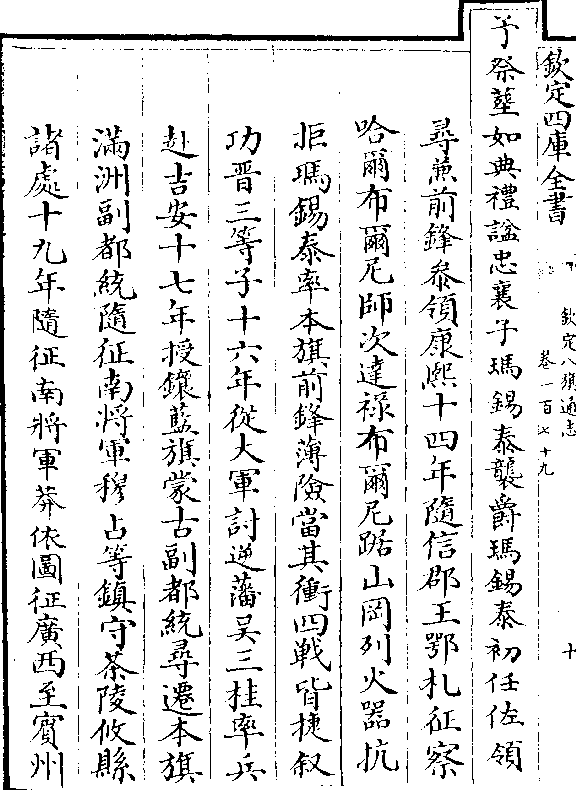 欽定四庫全書
欽定八旗通志
卷一百七十九
十
予祭塟如典禮諡忠襄子瑪錫泰襲爵瑪錫泰初任佐領
尋兼前鋒叅領康熙十四年隨信郡王鄂札征察
哈爾布爾尼師次達祿布爾尼踞山岡列火器抗
拒瑪錫泰率本旗前鋒薄險當其衝四戰皆捷叙
功晋三等子十六年從大軍討逆藩吳三桂率兵
赴吉安十七年授鑲藍旗蒙古副都統尋遷本旗
滿洲副都統隨征南將軍穆占等鎮守茶陵攸縣
諸處十九年隨征南將軍莽依圖征廣西至賓州